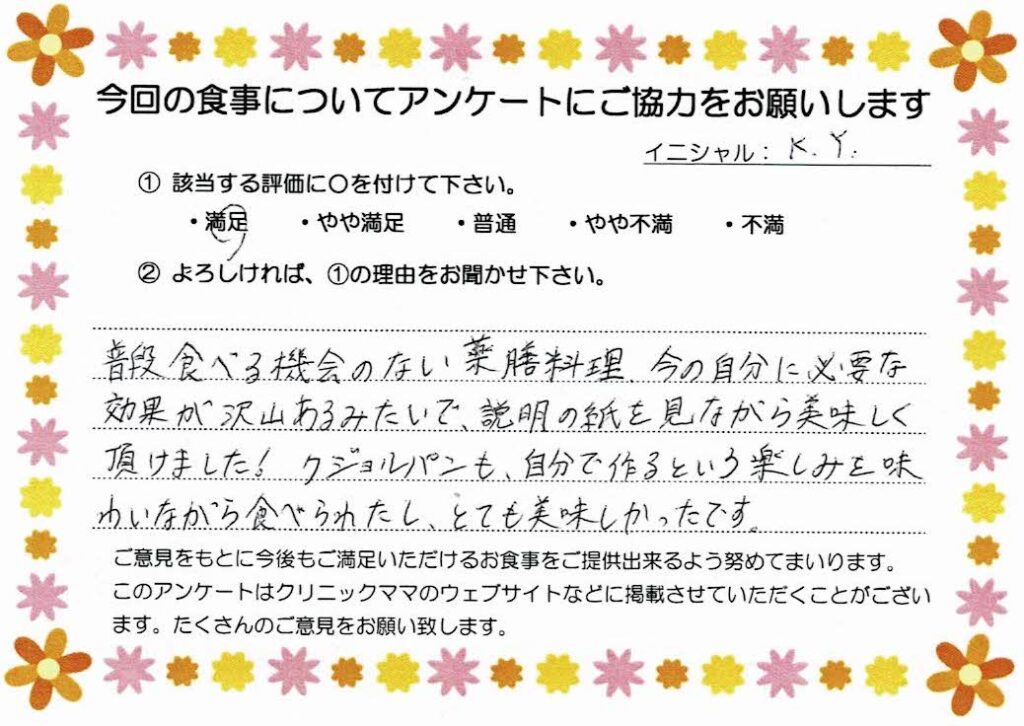 今回の食事についてアンケートにご協力をお願いします
イニシャル： K. Y.
① 該当する評価に〇を付けて下さい。
・満足 ・やや満足 ・普通 ・やや不満 ・不満
② よろしければ、①の理由をお聞かせ下さい。
普段食べる機会のない薬膳料理、今の自分に必要な
効果が沢山あるみたいで、説明の紙を見ながら美味しく
頂けました! クジョルパンも、自分で作るという楽しみを味
わいながら食べられたし、とても美味しかったです。
ご意見をもとに今後もご満足いただけるお食事をご提供出来るよう努めてまいります。
このアンケートはクリニックママのウェブサイトなどに掲載させていただくことがござい
ます。たくさんのご意見をお願い致します。